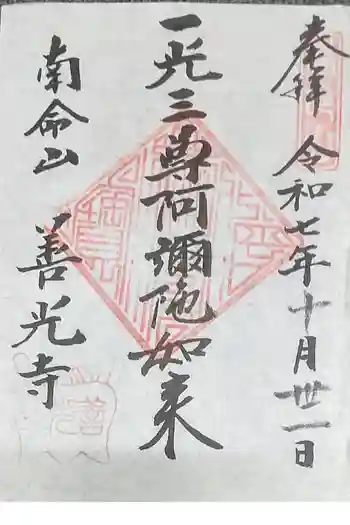 奉拝 令和七年十月卅一日
一光三尊阿彌陁如来
南命山 善光寺